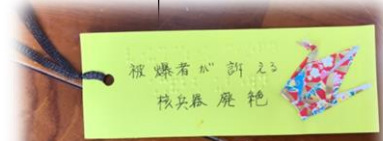 被爆者が訴える
核兵器廃絶